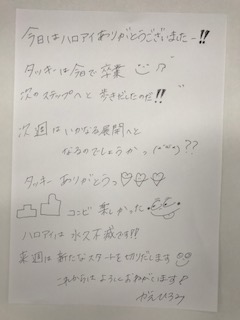 今日はハロアイありがとうございましたー!!
タッキーは今日で卒業 !?
次のステップへと歩きだしたのだ!!
次週はいかなる展開へと
なるのでしょうかっ ??
タッキーありがとうっ♡♡♡
コンビ 楽しかった
ハロアイは 永久不滅です!!
来週は新たなスタートを切りだします
これからはようしくおねがいします!